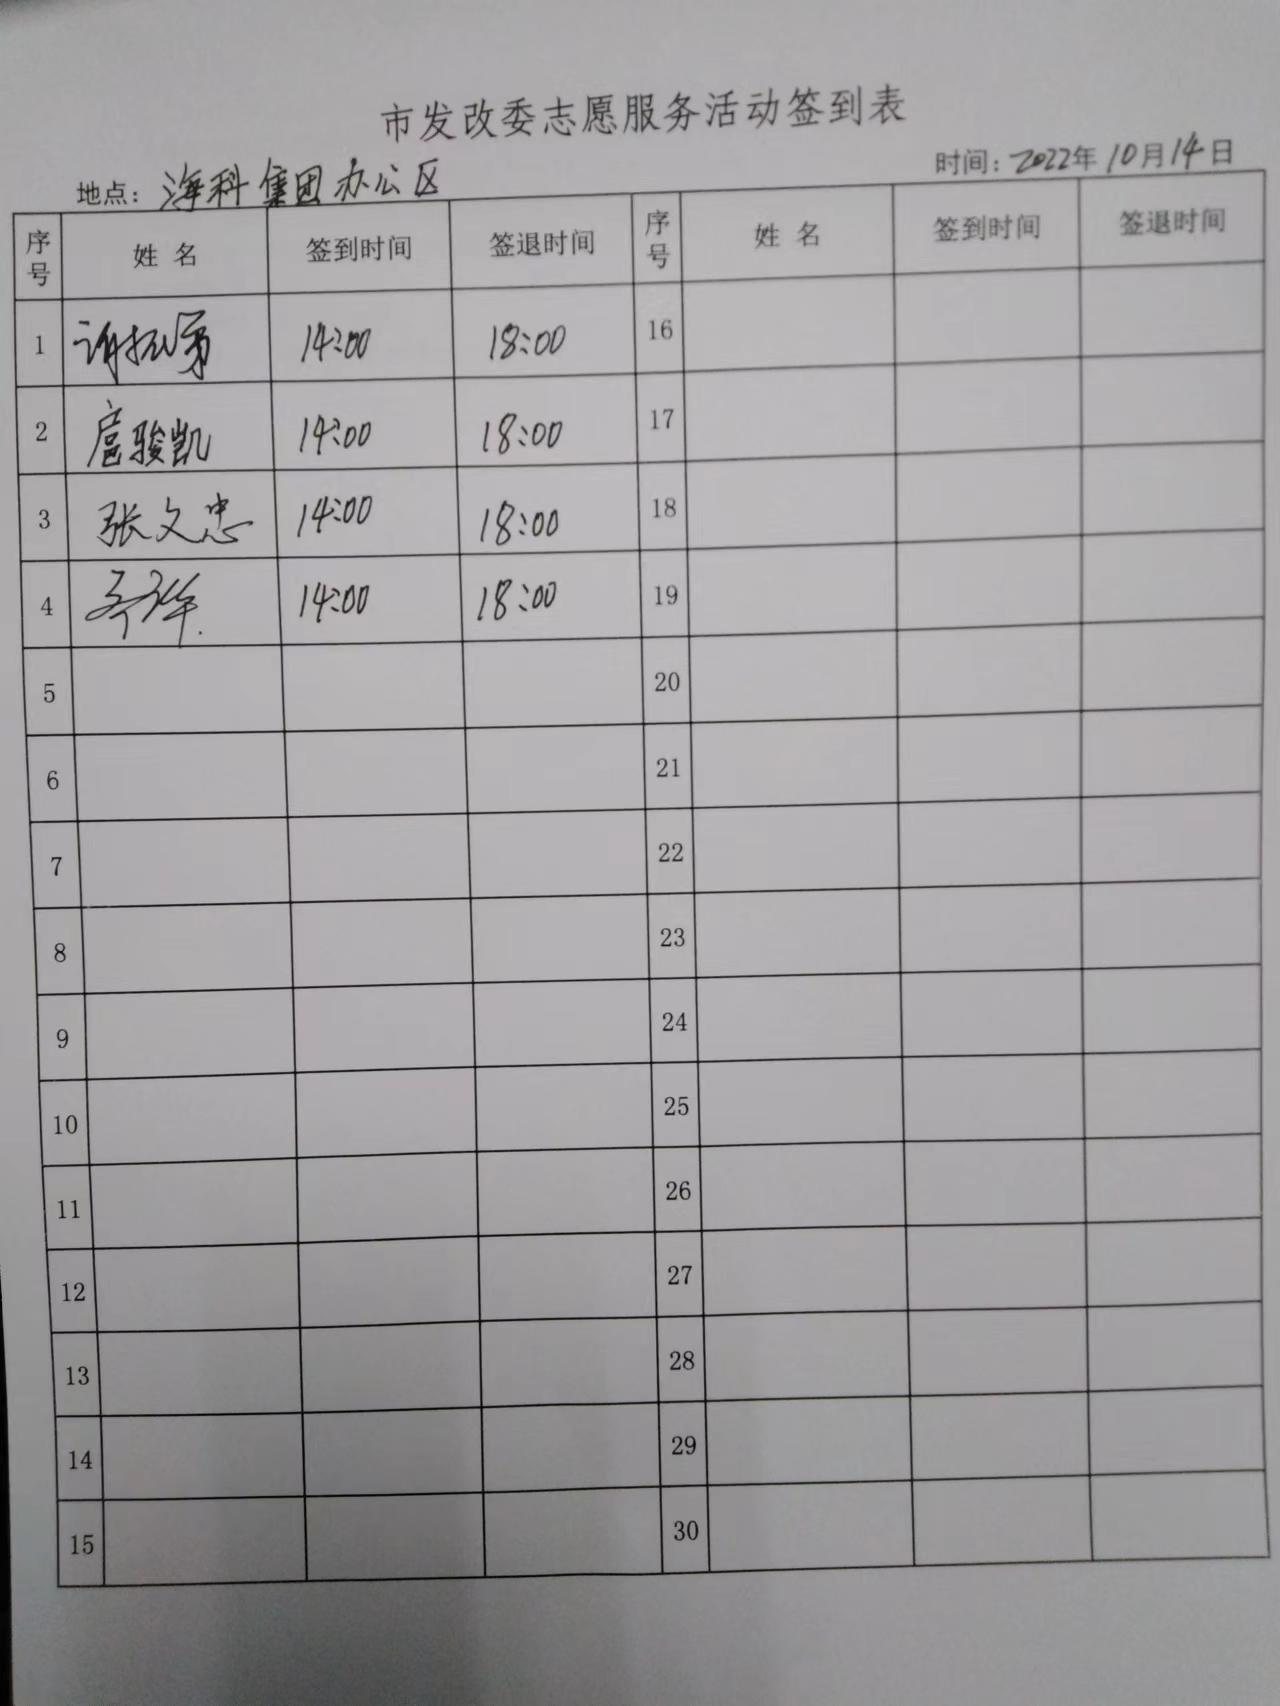 市发改委志愿服务活动签到表
地点：海科集团办公区 时间：2022年10月14日
序号 姓名 签到时间 签退时间 序号 姓名 签到时间 签退时间
1 14:00 18:00 16
2 扈骏凯 14:00 18:00 17
3 张文忠 14:00 18:00 18
4 14:00 18:00 19
5 20
6 21
7 22
8 23
9 24
10 25
11 26
12 27
13 28
14 29
15 30